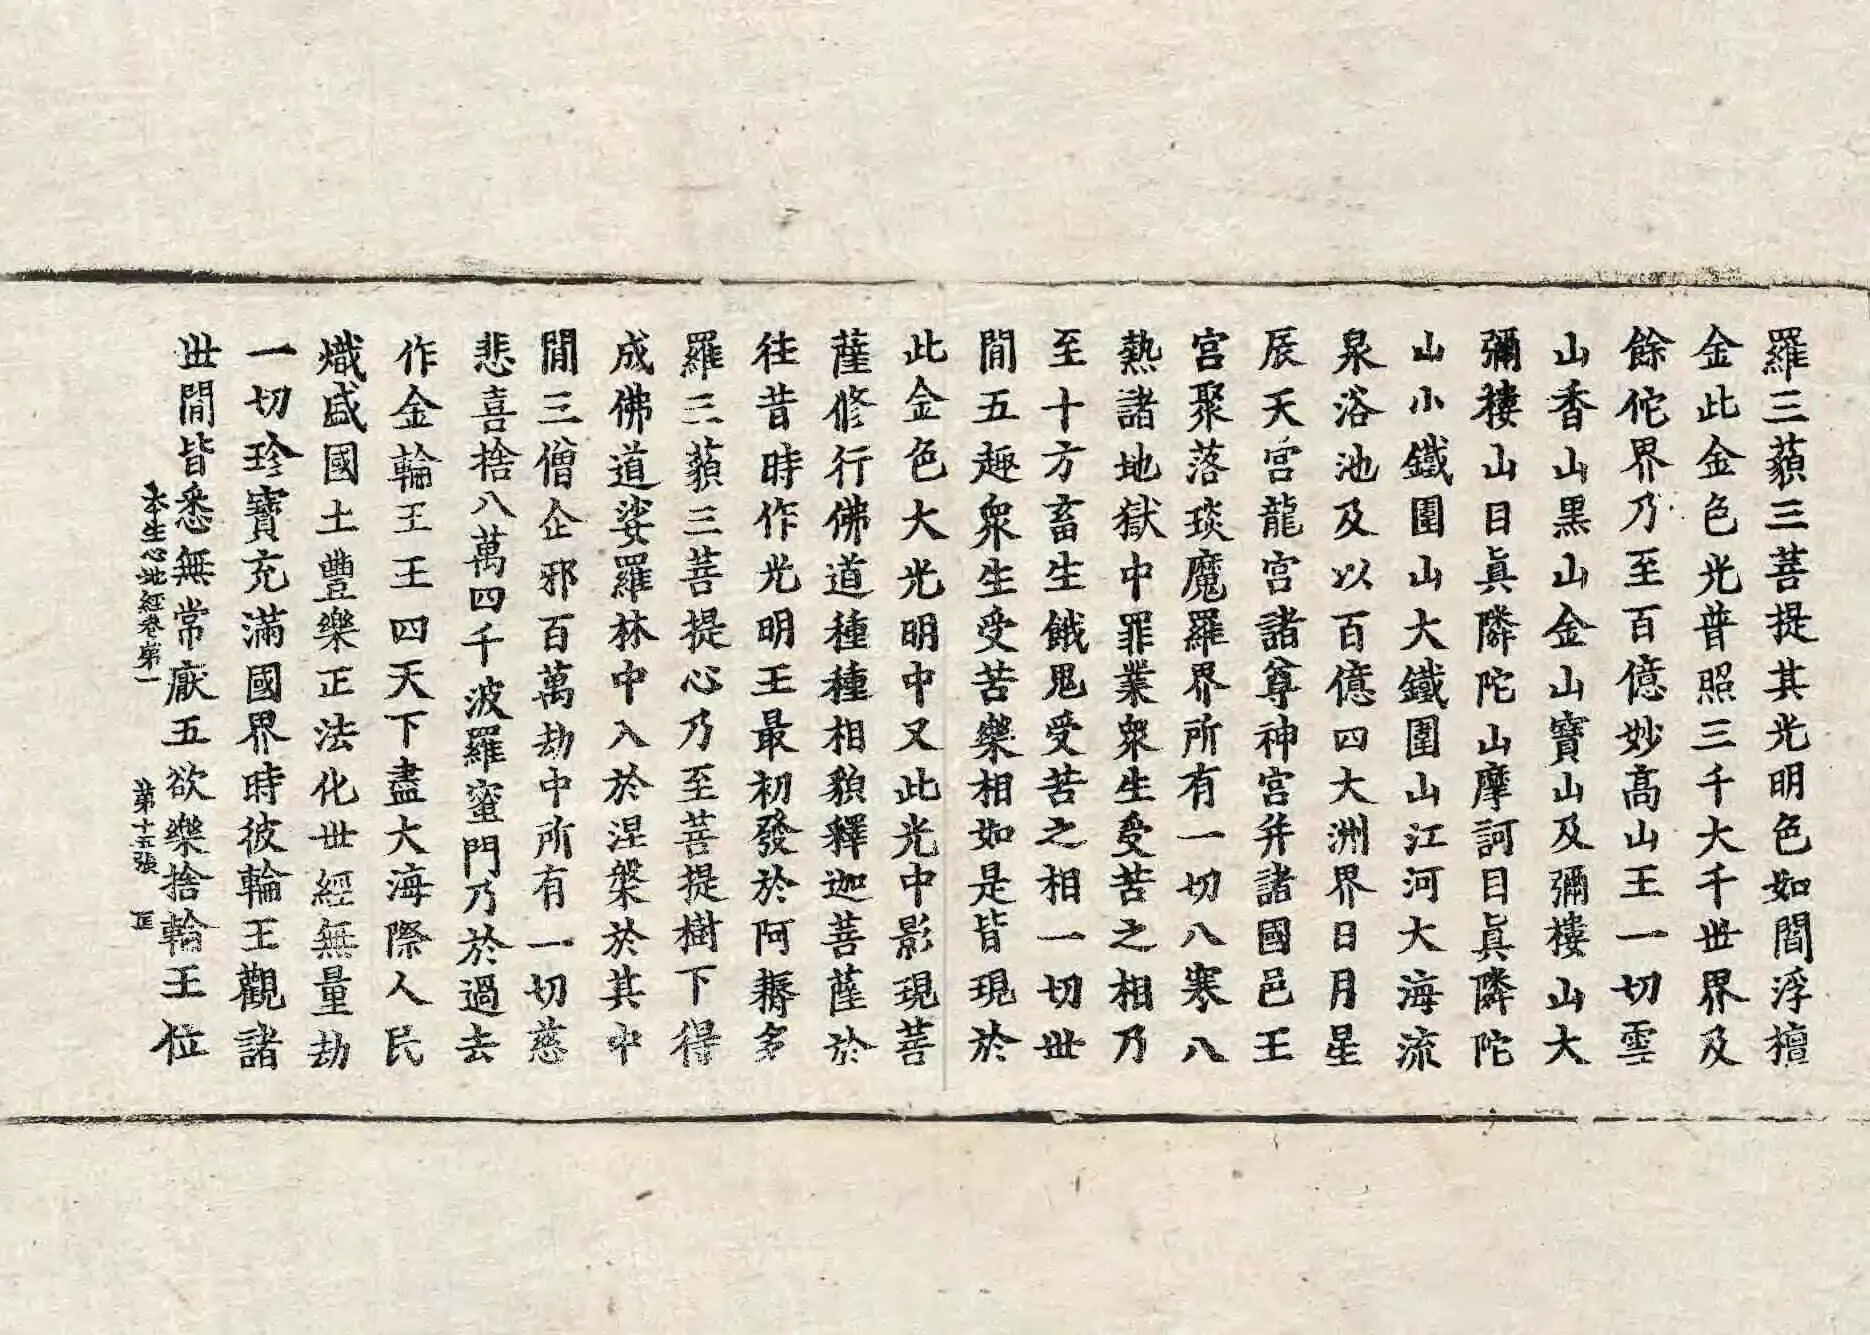 羅三藐三菩提其光明色如閻浮檀
金此金色光普照三千大千世界及
餘佗界乃至百億妙高山王一切雪
山香山黒山金山寶山及彌樓山大
彌樓山目眞隣陀山摩訶目眞隣陀
山小鐵圍山大鐵圍山江河大海流
泉浴池及以百億四大洲界日月星
辰天宮龍宮諸尊神宮并諸國邑王
宮聚落琰魔羅界所有一切八寒八
熱諸地獄中罪業衆生受苦之相乃
至十方畜生餓鬼受苦之相一切世
間五趣衆生受苦樂相如是皆現於
此金色大光明中又此光中影現菩
薩修行佛道種種相貌釋迦菩薩於
往昔時作光明王最初發於阿耨多
羅三藐三菩提心乃至菩提樹下得
成佛道娑羅林中入於涅槃於其中
間三僧企邪百萬劫中所有一切慈
悲喜捨八萬四千波羅蜜門乃於過去
作金輪王王四天下盡大海際人民
熾盛國土豐樂正法化世經無量劫
一切珍寶充滿國界時彼輪王觀諸
世間皆悉無常厭五欲樂捨輪王位
本生心地經卷第一 第十五張 疋